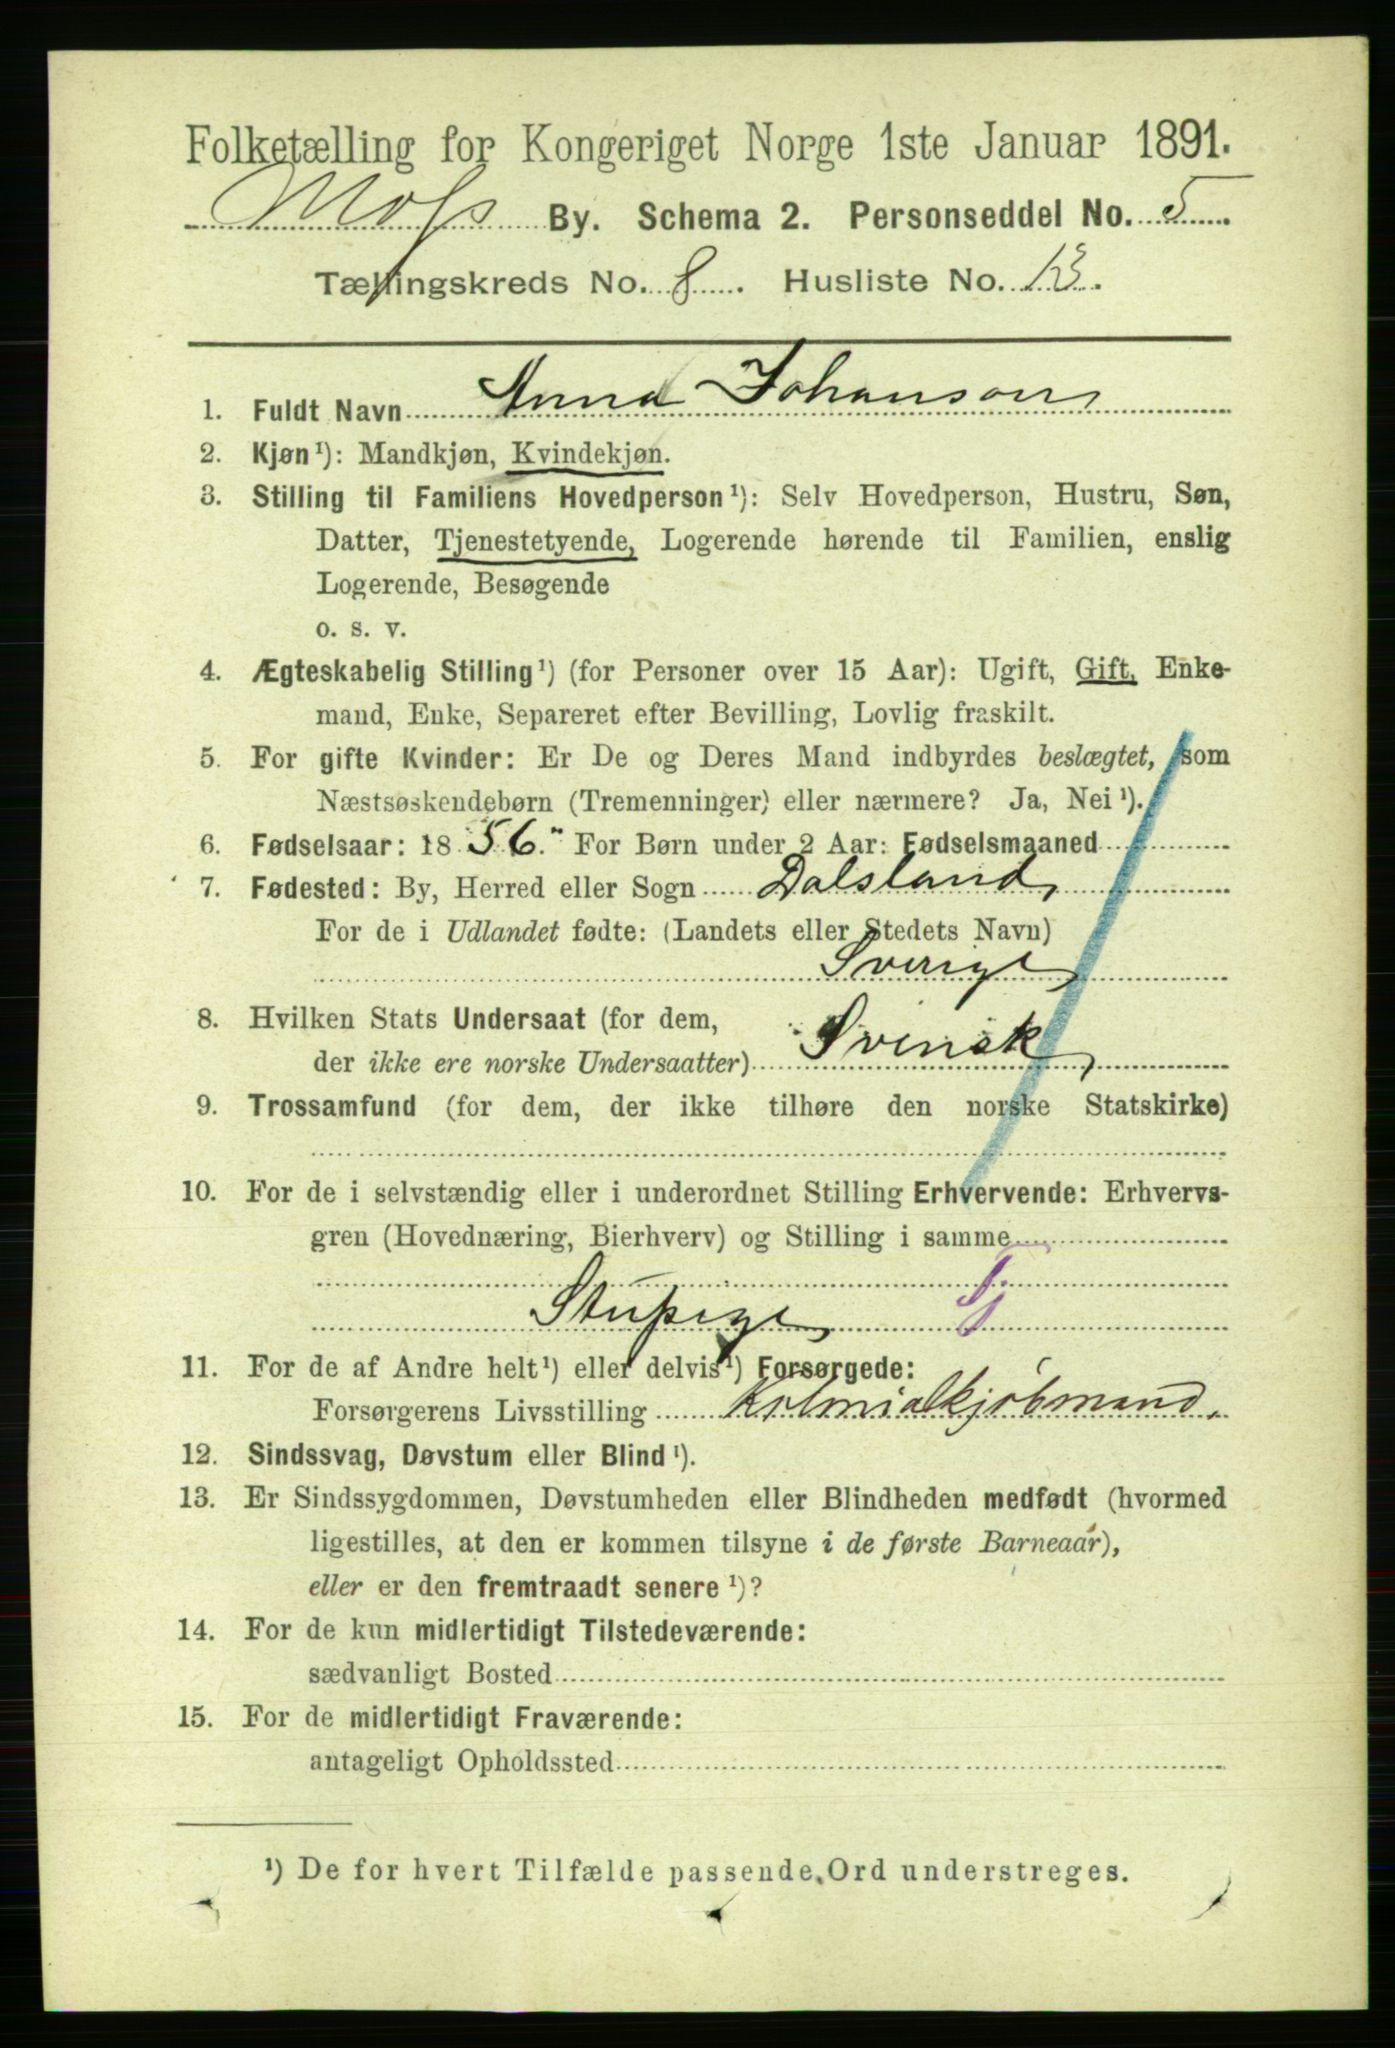 Folketælling for Kongeriget Norge 1ste Januar 1891.
Moss By. Schema 2. Personseddel No. 5
Tællingskreds No. 8. Husliste No. 13.
1. Fuldt Navn Anna Johanson
2. Kjøn ¹): Mandkjøn, Kvindekjøn.
3. Stilling til Familiens Hovedperson ¹): Selv Hovedperson, Hustru, Søn,
Datter, Tjenestetyende, Logerende hørende til Familien, enslig
Logerende, Besøgende
o. s. v.
4. Ægteskabelig Stilling ¹) (for Personer over 15 Aar): Ugift, Gift, Enke-
mand, Enke, Separeret efter Bevilling, Lovlig fraskilt.
5. For gifte Kvinder: Er De og Deres Mand indbyrdes beslægtet, som
Næstsøskendebørn (Tremenninger) eller nærmere? Ja, Nei ¹).
6. Fødselsaar: 1856. For Børn under 2 Aar: Fødselsmaaned
7. Fødested: By, Herred eller Sogn Dalsland,
For de i Udlandet fødte: (Landets eller Stedets Navn)
Sverige
8. Hvilken Stats Undersaat (for dem,
der ikke ere norske Undersaatter) Svensk
9. Trossamfund (for dem, der ikke tilhøre den norske Statskirke)
10. For de i selvstændig eller i underordnet Stilling Erhvervende: Erhvervs-
gren (Hovednæring, Bierhverv) og Stilling i samme
Stupige
11. For de af Andre helt ¹) eller delvis ¹) Forsørgede:
Forsørgerens Livsstilling Kolonialkjøbmand.
12. Sindssvag, Døvstum eller Blind ¹).
13. Er Sindssygdommen, Døvstumheden eller Blindheden medfødt (hvormed
ligestilles, at den er kommen tilsyne i de første Barneaar),
eller er den fremtraadt senere ¹)?
14. For de kun midlertidigt Tilstedeværende:
sædvanligt Bosted
15. For de midlertidigt Fraværende:
antageligt Opholdssted
¹) De for hvert Tilfælde passende Ord understreges.